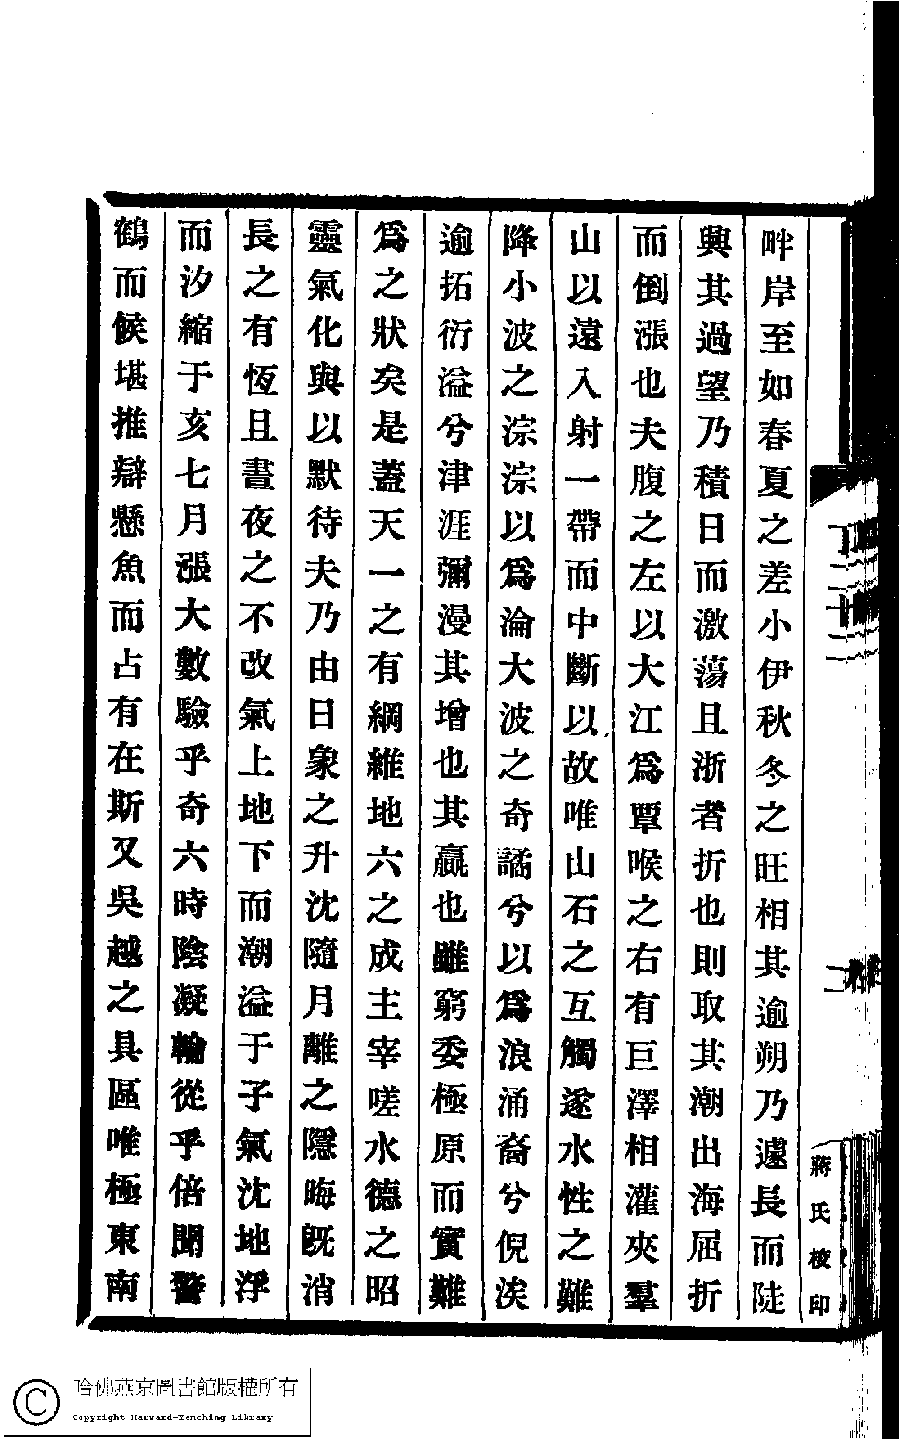 畔岸至如春夏之差小伊秋冬之旺相其逾朔乃遽長而陡
興其過望乃積日而激蕩且浙者折也則取其潮出海屈折
而倒漲也夫腹之左以大江爲覃喉之右有巨澤相灌夾羣
山以遠入射一帶而中斷以故唯山石之互觸遂水性之難
降小波之淙淙以爲淪大波之奇譎兮以爲浪涌裔兮倪涘
逾拓衍溢兮津涯彌漫其增也其贏也雖窮委極原而實難
爲之狀矣是蓋天一之有綱維地六之成主宰嗟水德之昭
靈氣化與以默待夫乃由日象之升沈隨月離之隱晦旣消
長之有恆且晝夜之不改氣上地下而潮溢于子氣沈地浮
而汐縮于亥七月漲大數驗乎奇六時陰凝輪從乎倍聞警
鶴而候堪推辯懸魚而占有在斯又吳越之具區唯極東南
蔣氏校印
哈佛燕京圖書館版權所有
Copyright Harvard-Yenching Library